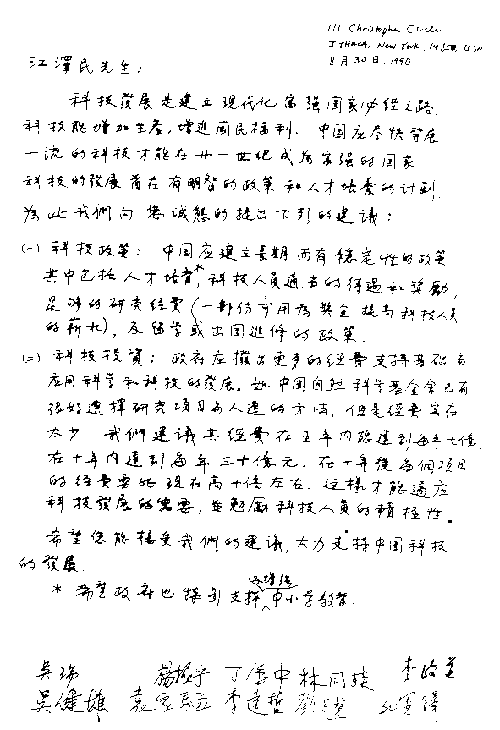 111 Christopher Circle
ITHACA, New York, 14850, USA
8月30日, 1996
江澤民先生:
科技發展是建立現代化富强国家必經之路.
科技能增加生產,增進國民福利. 中国应尽快發展
一流的科技才能在廿一世紀成為富强的国家
科技的發展首在有明智的政策和人才培養的计划.
為此我們向您诚懇的提出下列的建議:
(一) 科技政策: 中国应建立長期而有稳定性的政策
其中包括人才培育*,科技人員適当的待遇和奖勵,
足夠的研究经費(一部份可用為奖金提高科技人员
的薪水),及留学或出国進修的政策.
(二) 科技投資: 政府应撥出更多的经費支持基础与
应用科学和科技的發展. 中国自然科学基金会已有
很好選擇研究項目与人選的方法, 但是经費实在
太少. 我們建議其经費在五年内
在十年内達到每年三十億元. 在十年後每個項目
的经費要比現在高十倍左右. 这樣才能適应
科技發展的需要, 並勉勵科技人員的積極性.
希望您能接受我們的建議,大力支持中国科技
的發展.
* 希望政府也 支持中小学教育.
吳瑞 楊振宁 丁肇中 林同炎 李政道
吳健雄 袁家騮 李遠哲